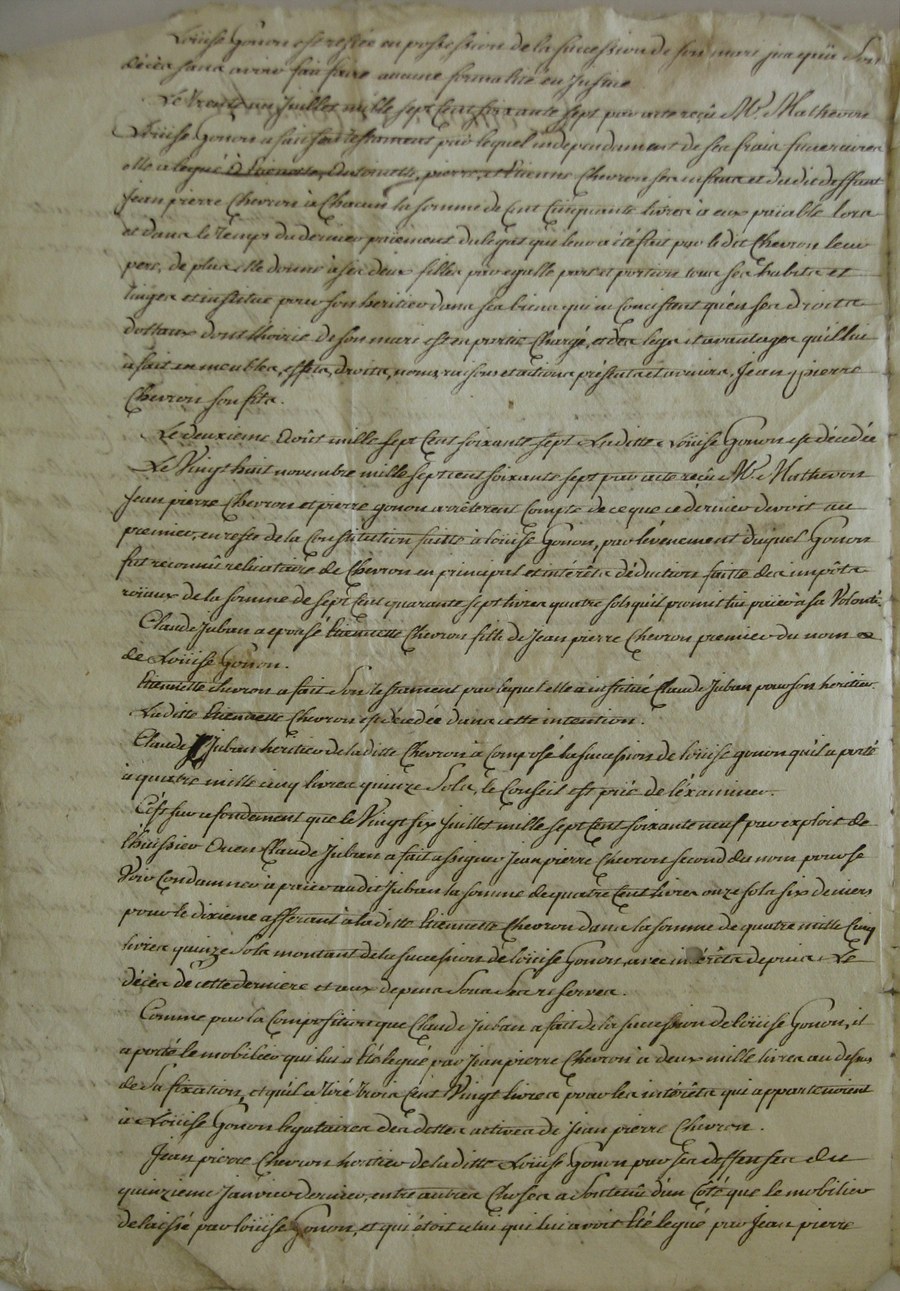 Loüise Gonon est restée en possession de la succession de son mari jusqu'a son
décès sans avoir fait faire aucune formalité en Justice
Le trente un Juillet mille sept cent soixante sept par acte reçu Me. Mathevon
Loüise Gonon a fait son testament par lequel independamment de ses frais funeraires
elle a legué à Etiennette, Antoinette, pierre, et Etienne Chevron ses enfans et du dit deffunt
Jean pierre Chevron à Chacun la somme de Cent Cinquante livres à eux païable lors
et dans le temps du dernier paiement du legat qui leur a été fait par le dit Chevron leur
pere, de plus elle donne à ses deux filles par egalle part et portion tous ses habits et
linges et institue pour son heritier dans ses biens qui ne Consistent qu'en ses droits
dottaux dont l'hoirie de son mari est en partie Chargé, et des legs et avantages qu'il lui
a fait en meubles, effets, droits, noms, raisons et actions présents et avenirs, Jean pierre
Chevron son fils.
Le deuxième Août mille sept Cent soixante sept laditte Loüise Gonon est décedée
Le Vingt huit novembre mille sept cent soixante sept par acte reçu Me. Mathevon
Jean pierre Chevron et pierre gonon arrêterent Compte de ce que ce dernier devoit au
premier, en reste de la Constitution faitte à loüise Gonon, par l'évenement duquel Gonon
fut reconnû reliquataire de Chevron en principal et intérêts déduction faitte des impôts
roïaux de la somme de sept Cent quarante sept livres quatre sols qu'il promit lui païer à sa Volonté.
Claude Juban a eposé Etiennette Chevron fille de Jean pierre Chevron premier du nom &
de Loüise Gonon.
Etiennette chevron a fait Son testament par lequel elle a institué Claude Juban pour son heritier.
Laditte Etiennette Chevron est décedée dans cette intention.
Claude Juban heritier de laditte Chevron à Composé la succession de loüise gonon qu'il a porté
à quatre mille cinq livres quinze Sols, le Conseil est prié de l'éxaminer.
C'est sur ce fondement que le Vingt six Juillet mille sept Cent soixante neuf par exploit de
l'huissier Claude Juban a fait assigner Jean pierre Chevron second du nom pour se
Voir Condamner à païer audit Juban la somme de quatre Cent livres onze sols six deniers
pour le dixieme afferant à laditte Etiennette Chevron dans la somme de quatre mille Cinq
livres quinze Sols montant de la succession de loüise Gonon, avec intérêts depuis Le
décès de cette derniere et aux depens Sous Ses reserves.
Comme par la Composition que Claude Juban a fait de la succession de loüise Gonon, il
a porté le mobilier qui lui a Eté legué par Jean pierre Chevron à deux mille livres au dessus
de Sa fixation, et qu'il a tiré trois Cent Vingt livres pour les intérêts qui appartenoient
à Loüise Gonon legataire des dettes actives de Jean pierre Chevron.
Jean pierre Chevron heritier de laditte Loüise Gonon par ses deffenses du
quinzieme Janvier dernier, entre autres Choses a Soutenû d'un Côté que le mobilier
delaissé par loüise Gonon, et qui étoit celui qui lui avoit Eté legué par Jean pierre